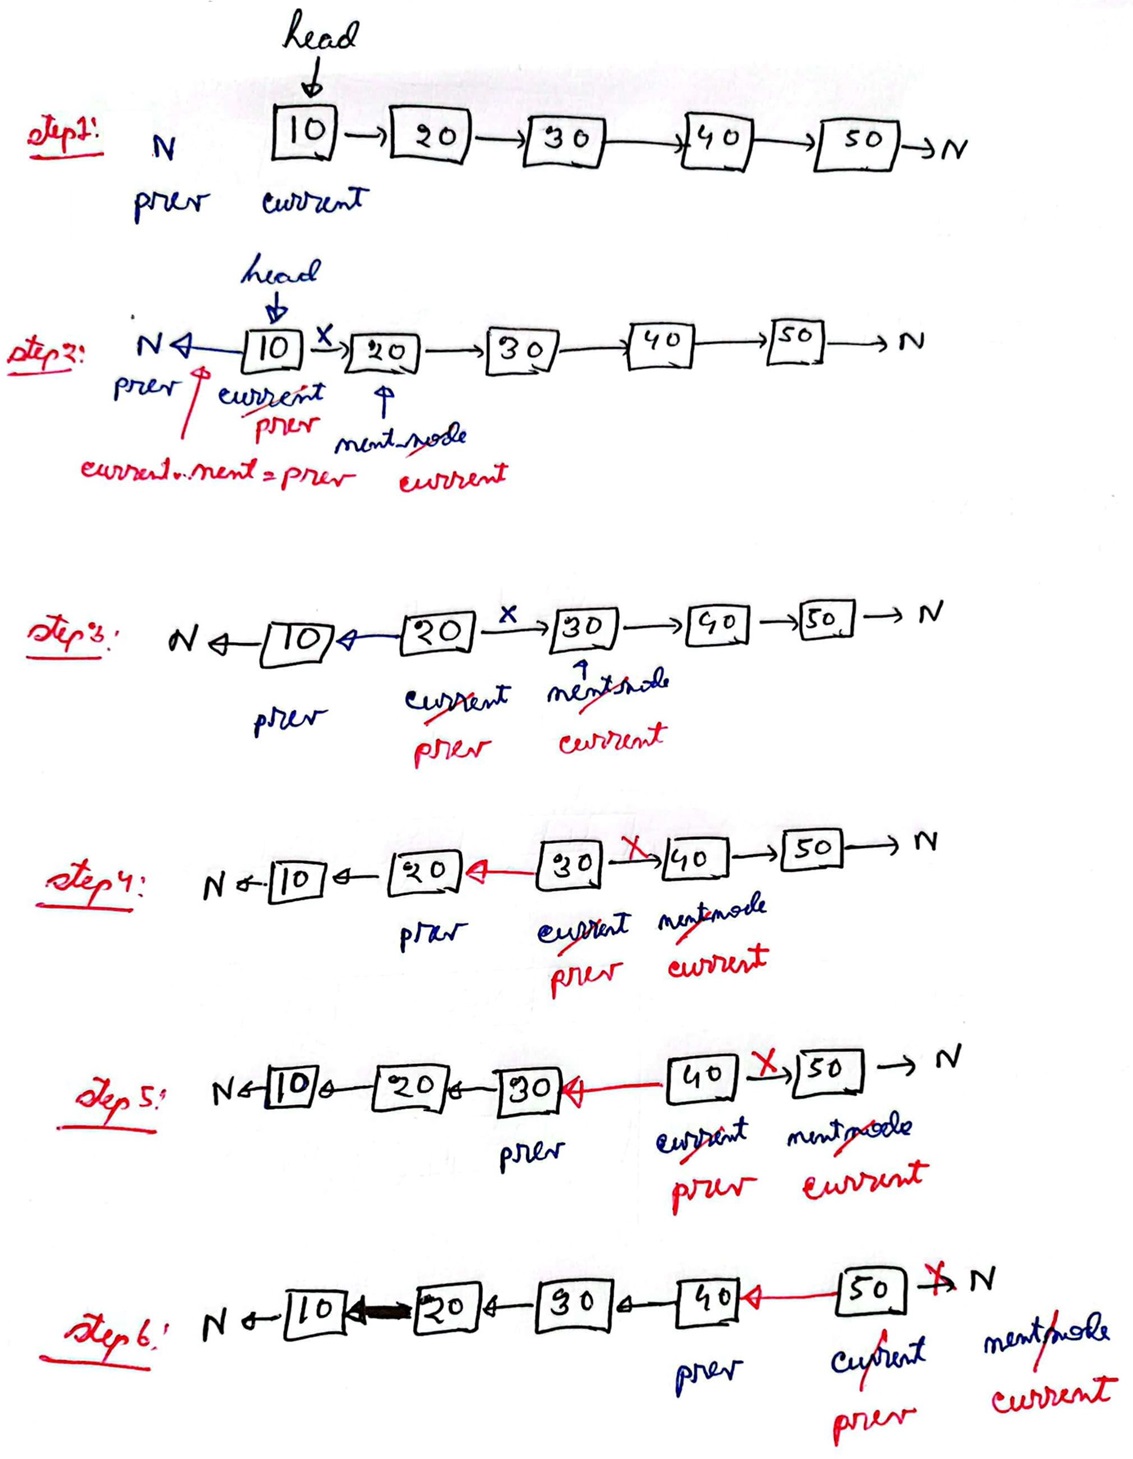 head
step1: N 10 20 30 40 50 N
prev current
head
step2: N 10 x 20 30 40 50 N
prev current
prev next-node
current.next = prev current
step3: N 10 20 x 30 40 50 N
prev current nextnode
prev current
step4: N 10 20 30 x 40 50 N
prev current nextnode
prev current
step5: N 10 20 30 40 x 50 N
prev current nextnode
prev current
step6: N 10 20 30 40 50 x N
prev current nextnode
prev current